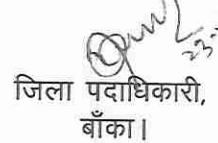 जिला पदाधिकारी,
बाँका।